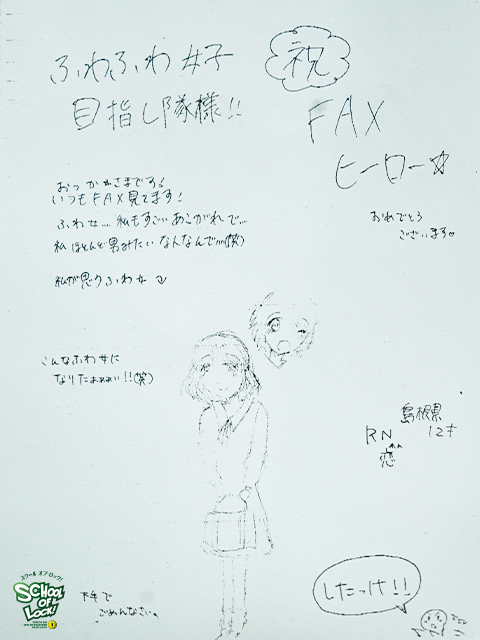 ふわふわ女子
目指し隊様!!
祝
FAX
ヒーロー☆
おめでとう
ございます。
おつかれさまです!
いつもFAX見てます!
ふわ女…。私もすごいあこがれで…
私ほとんど男みたいな人なんで…(笑)
私が思うふわ女
こんなふわ女に
なりたぁぁぁい!!(笑)
島根県
12才
RN
恋
れん
下手で
ごめんなさい。
したっけ!!
スクール オブ ロック!
SCHOOL
OF
LOCK!